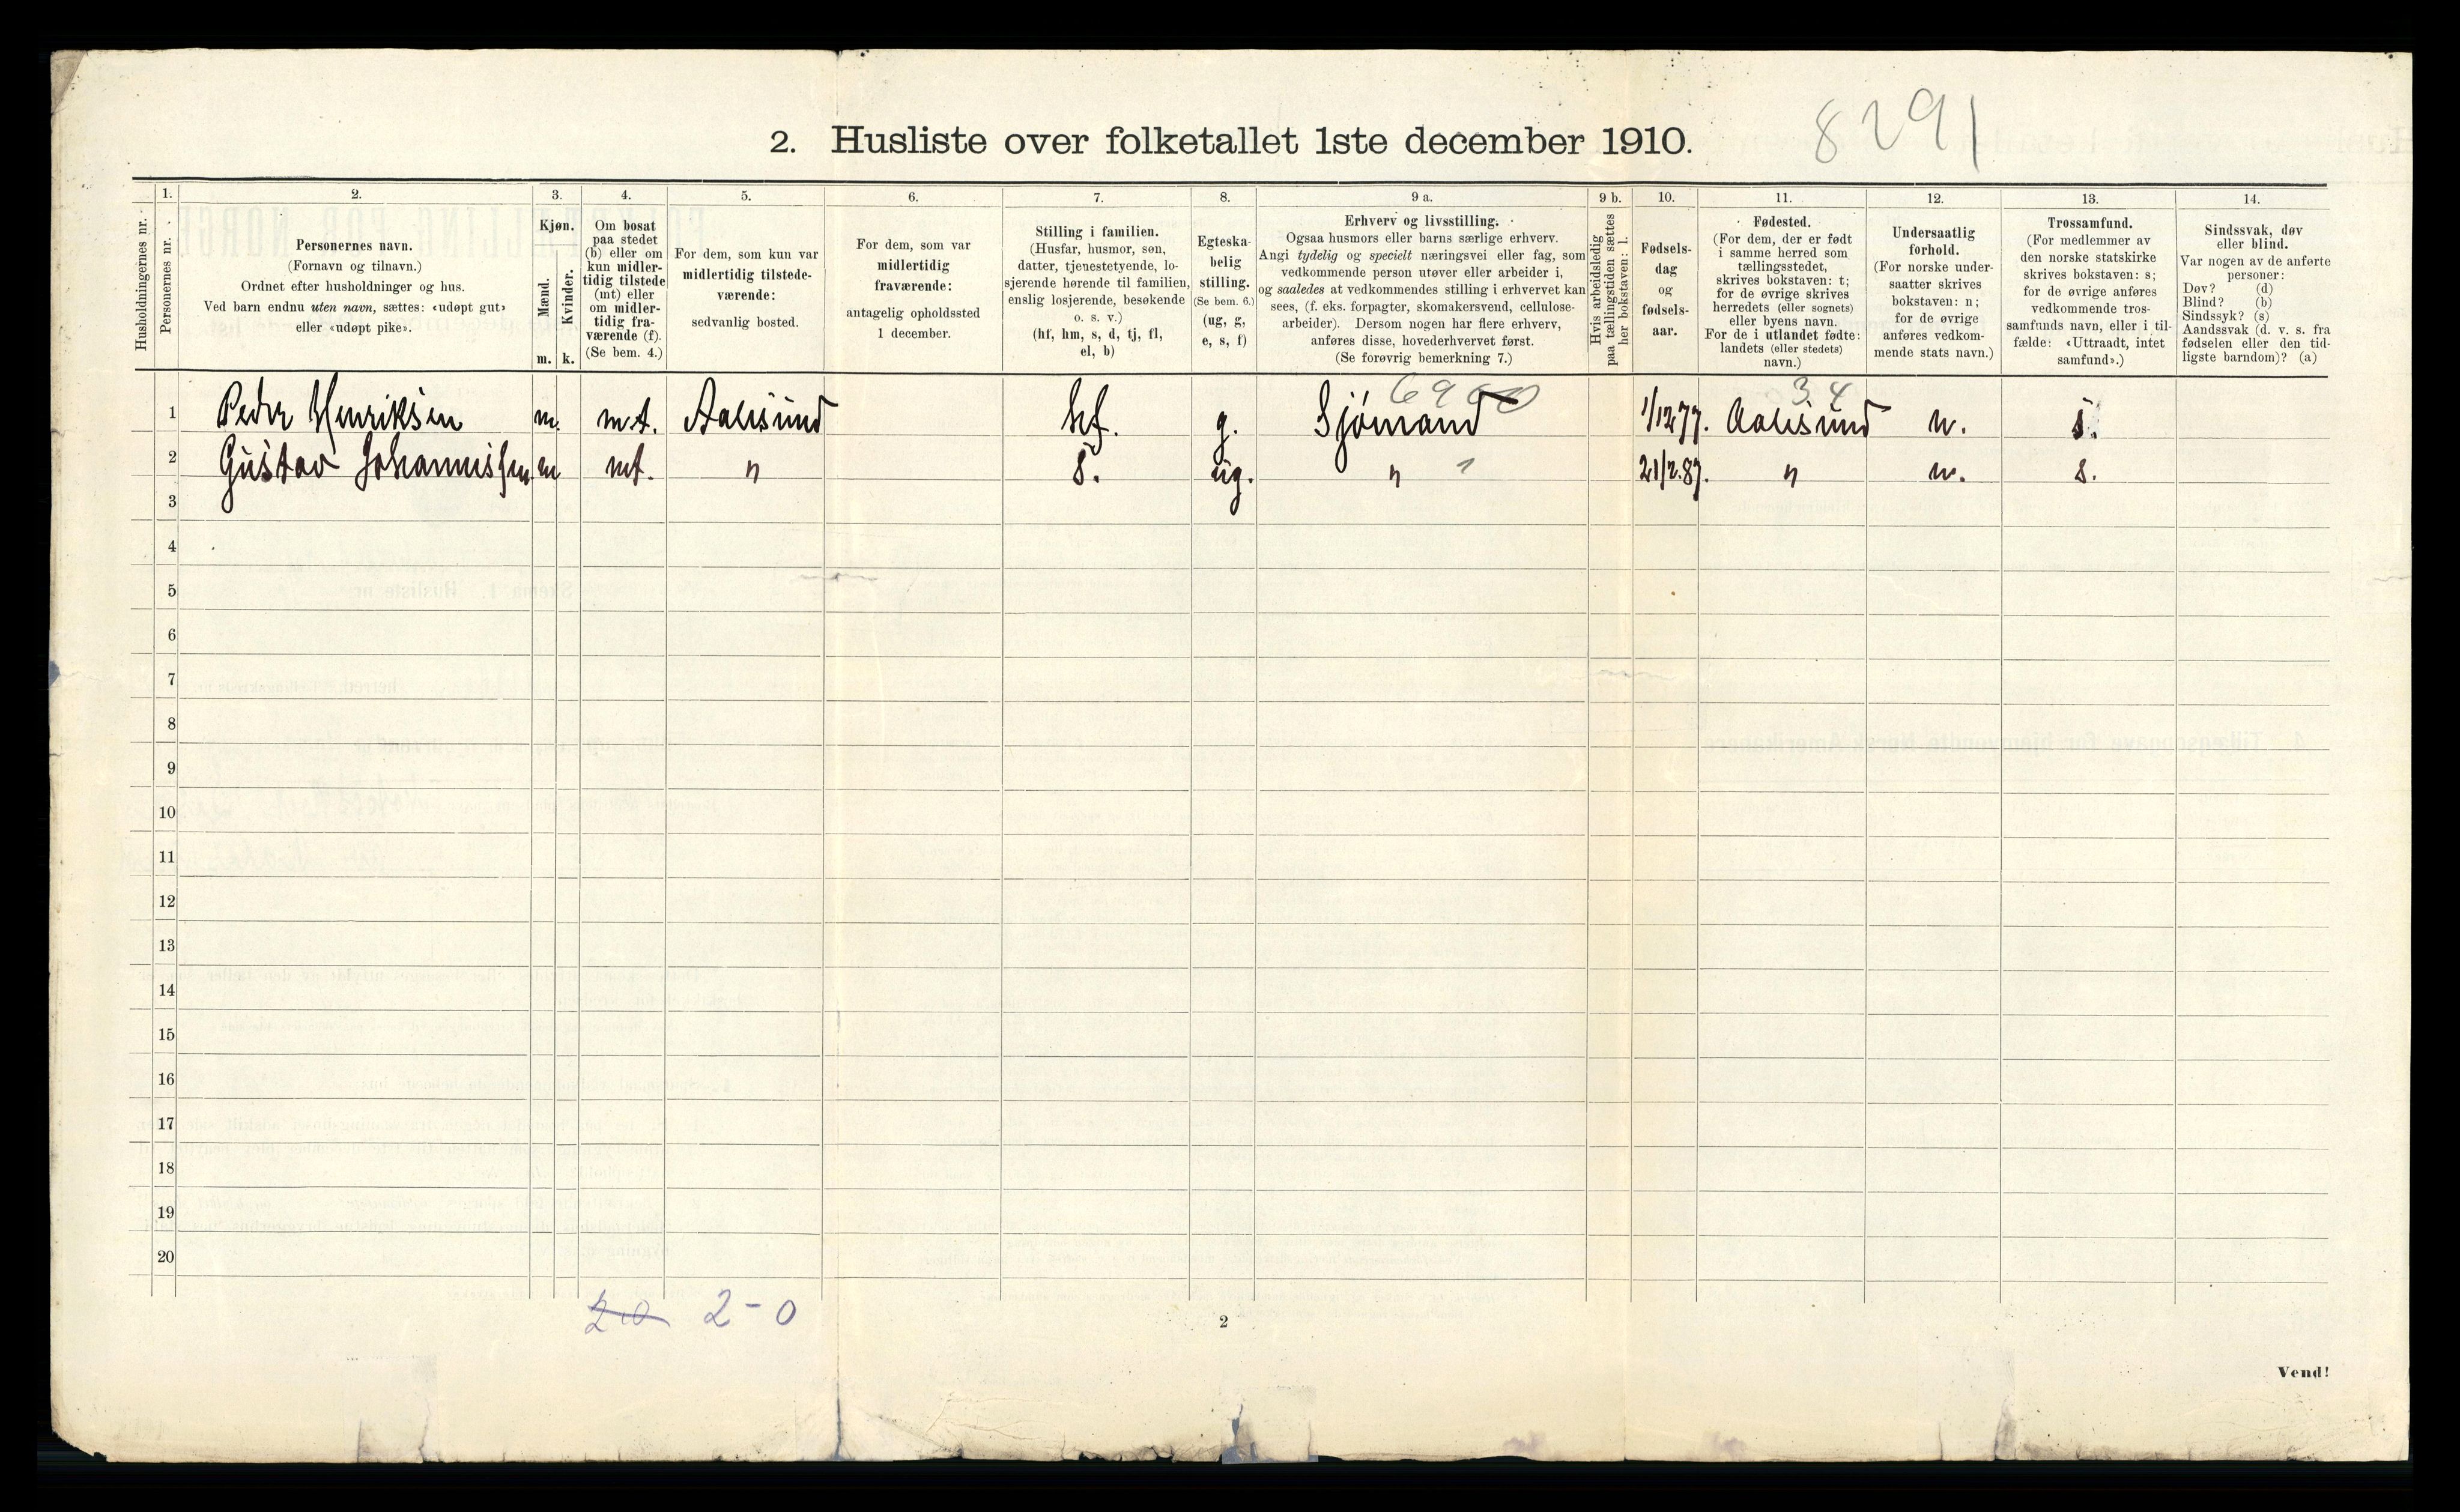 8291
2. Husliste over folketallet 1ste december 1910.
Husholdningernes nr.
1.
Personernes nr.
2.
Personernes navn.
(Fornavn og tilnavn.)
Ordnet efter husholdninger og hus.
Ved barn endnu uten navn, sættes: «udøpt gut»
eller «udøpt pike».
3.
Kjøn.
Mænd.
Kvinder.
m. k.
4.
Om bosat
paa stedet
(b) eller om
kun midler-
tidig tilstede
(mt) eller
om midler-
tidig fra-
værende (f).
(Se bem. 4.)
5.
For dem, som kun var
midlertidig tilstede-
værende:
sedvanlig bosted.
6.
For dem, som var
midlertidig
fraværende:
antagelig opholdssted
1 december.
7.
Stilling i familien.
(Husfar, husmor, søn,
datter, tjenestetyende, lo-
sjerende hørende til familien,
enslig losjerende, besøkende
o. s. v.)
(hf, hm, s, d, tj, fl,
el, b)
8.
Egteska-
belig
stilling.
(Se bem. 6.)
(ug, g,
e, s, f)
9 a.
Erhverv og livsstilling.
Ogsaa husmors eller barns særlige erhverv.
Angi tydelig og specielt næringsvei eller fag, som
vedkommende person utøver eller arbeider i,
og saaledes at vedkommendes stilling i erhvervet kan
sees, (f. eks. forpagter, skomakersvend, cellulose-
arbeider). Dersom nogen har flere erhverv,
anføres disse, hovederhvervet først.
(Se forøvrig bemerkning 7.)
9 b.
Hvis arbeidsledig
paa tællingstiden sættes
her bokstaven: l.
10.
Fødsels-
dag
og
fødsels-
aar.
11.
Fødested.
(For dem, der er født
i samme herred som
tællingsstedet,
skrives bokstaven: t;
for de øvrige skrives
herredets (eller sognets)
eller byens navn.
For de i utlandet fødte:
landets (eller stedets)
navn.)
12.
Undersaatlig
forhold.
(For norske under-
saatter skrives
bokstaven: n;
for de øvrige
anføres vedkom-
mende stats navn.)
13.
Trossamfund.
(For medlemmer av
den norske statskirke
skrives bokstaven: s;
for de øvrige anføres
vedkommende tros-
samfunds navn, eller i til-
fælde: «Uttraadt, intet
samfund».)
14.
Sindssvak, døv
eller blind.
Var nogen av de anførte
personer:
Døv? (d)
Blind? (b)
Sindssyk? (s)
Aandssvak (d. v. s. fra
fødselen eller den tid-
ligste barndom)? (a)
34
1 Peder Henriksen m. mt. Aalesund hf. g. Sjømand 1/12 77. Aalesund n. s.
2 Gustav Johannissen. m mt. " s. ug. " 21/2.87. " n. s.
3
4
5
6
7
8
9
10
11
12
13
14
15
16
17
18
19
20
2-0
2
Vend!